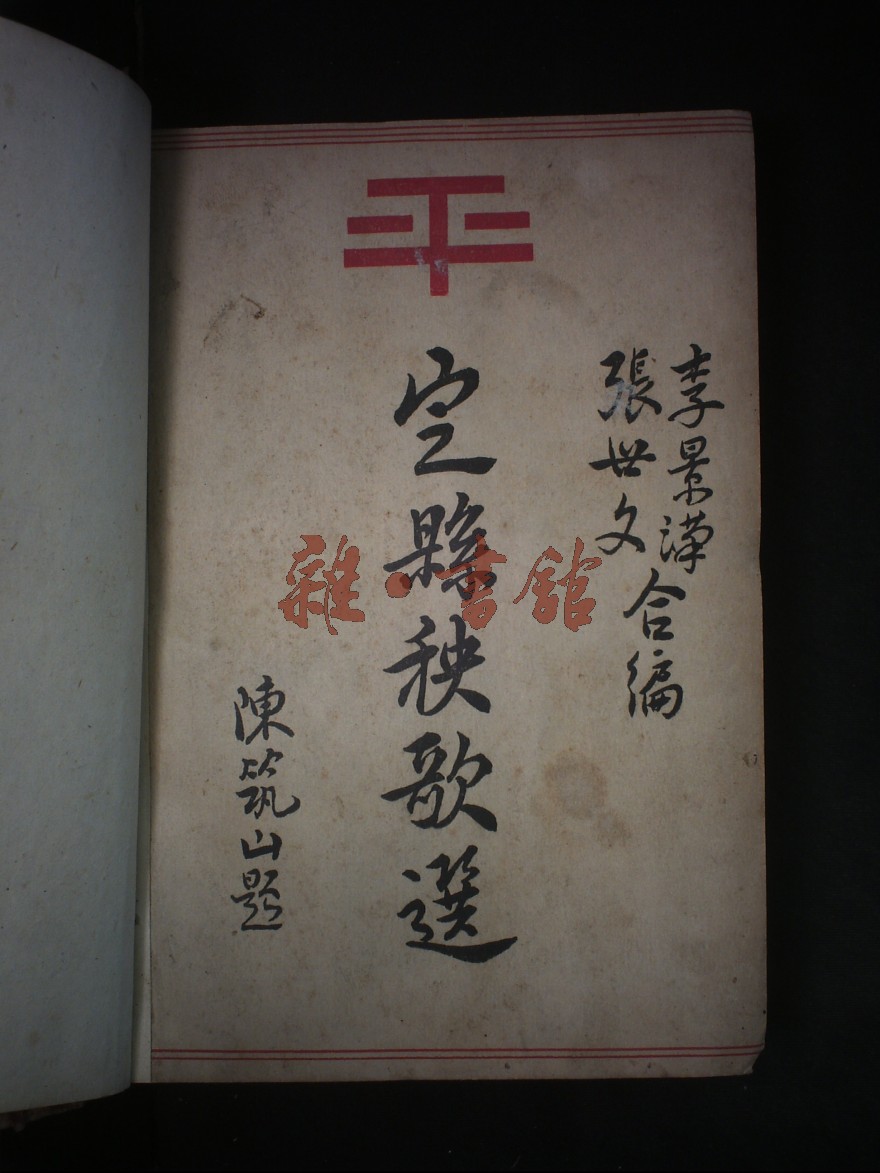 李景漢
張世文
合編
定縣秧歌選
陳筑山題
雜·書館